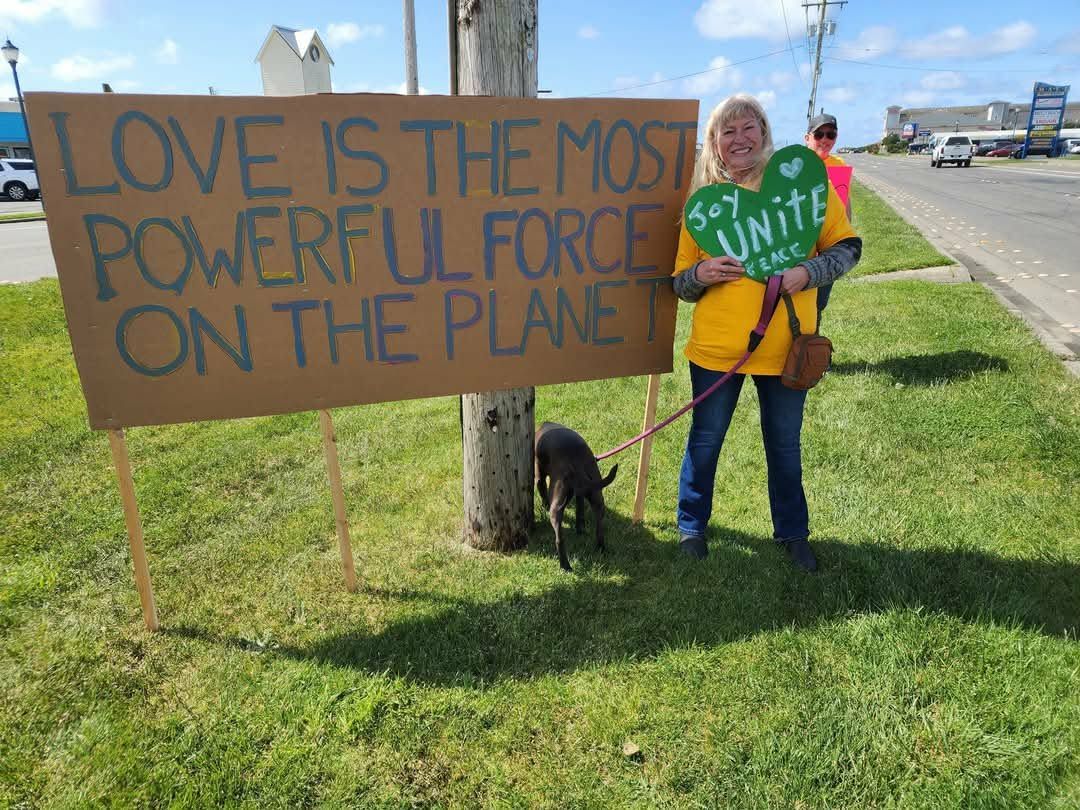 LOVE IS THE MOST
POWERFUL FORCE
ON THE PLANET
JOY
UNITE
PEACE